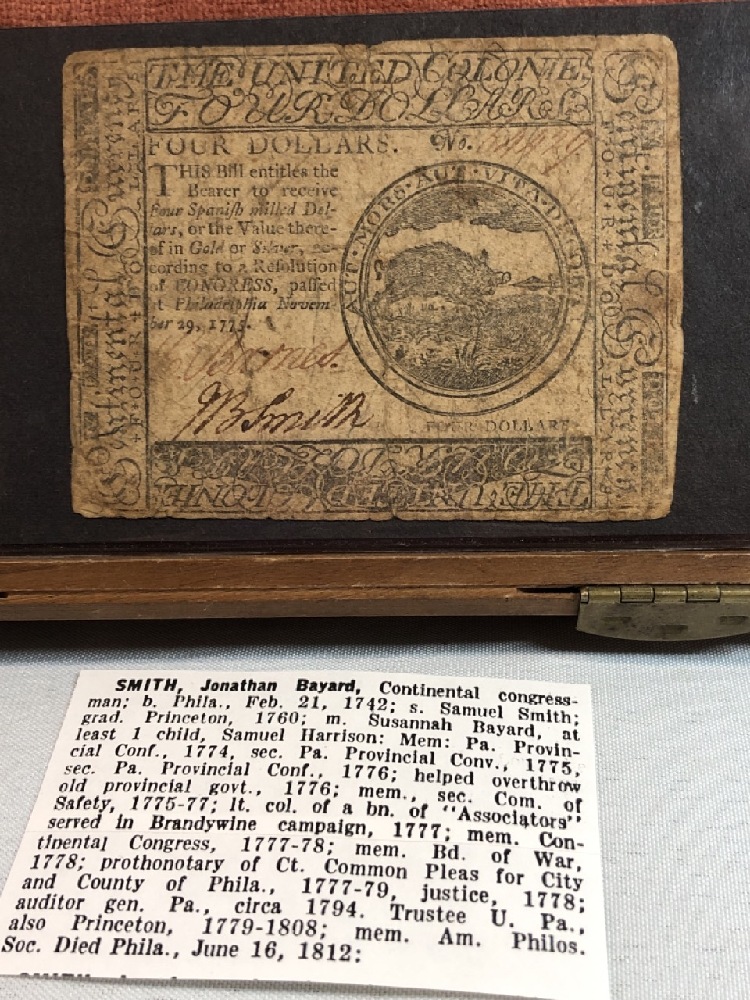 THE UNITED COLONIES
FOUR DOLLARS
FOUR DOLLARS. No.
THIS Bill entitles the
Bearer to receive
Four Spanish milled Dol-
lars, or the Value there-
of in Gold or Silver, ac-
cording to a Resolution
of CONGRESS, passed
at Philadelphia Novem-
ber 29, 1775.
JB Smith
AUT·MORS·AUT·VITA·DECORA
FOUR DOLLARS
Continental Currency
FOUR DOLLARS
Continental Currency
FOUR DOLLARS
FOUR DOLLARS
THE UNITED COLONIES
SMITH, Jonathan Bayard, Continental congress-
man; b. Phila., Feb. 21, 1742; s. Samuel Smith;
grad. Princeton, 1760; m. Susannah Bayard, at
least 1 child, Samuel Harrison; Mem: Pa. Provin-
cial Conf., 1774, sec. Pa. Provincial Conv., 1775,
sec. Pa. Provincial Conf., 1776; helped overthrow
old provincial govt., 1776; mem., sec. Com. of
Safety, 1775-77; lt. col. of a bn. of "Associators"
served in Brandywine campaign, 1777; mem. Con-
tinental Congress, 1777-78; mem. Bd. of War,
1778; prothonotary of Ct. Common Pleas for City
and County of Phila., 1777-79, justice, 1778;
auditor gen. Pa., circa 1794. Trustee U. Pa.,
also Princeton, 1779-1808; mem. Am. Philos.
Soc. Died Phila., June 16, 1812;